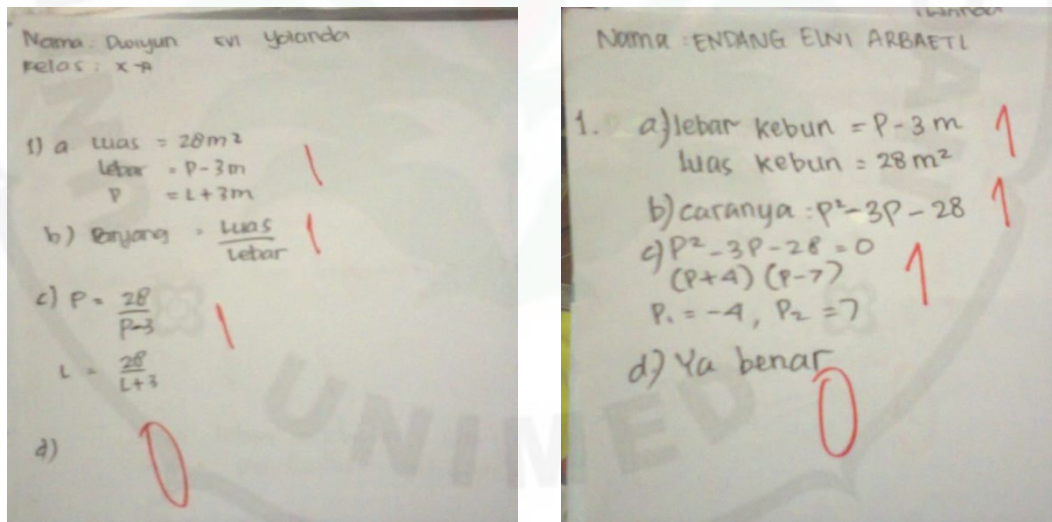 Nama : Dwiyun EVI Yolanda
Kelas : X-A
1) a Luas = 28m²
Lebar = P-3m
P = L+3m
b) Panjang = Luas / Lebar
c) P = 28 / P-3
L = 28 / L+3
d)
1
1
1
0
Nama : ENDANG ELNI ARBAETI
1. a) lebar kebun = P-3 m
luas kebun = 28 m²
b) caranya : P²-3P-28
c) P²-3P-28=0
(P+4) (P-7)
P₁ = -4, P₂ = 7
d) Ya benar
1
1
1
0
UNIMED